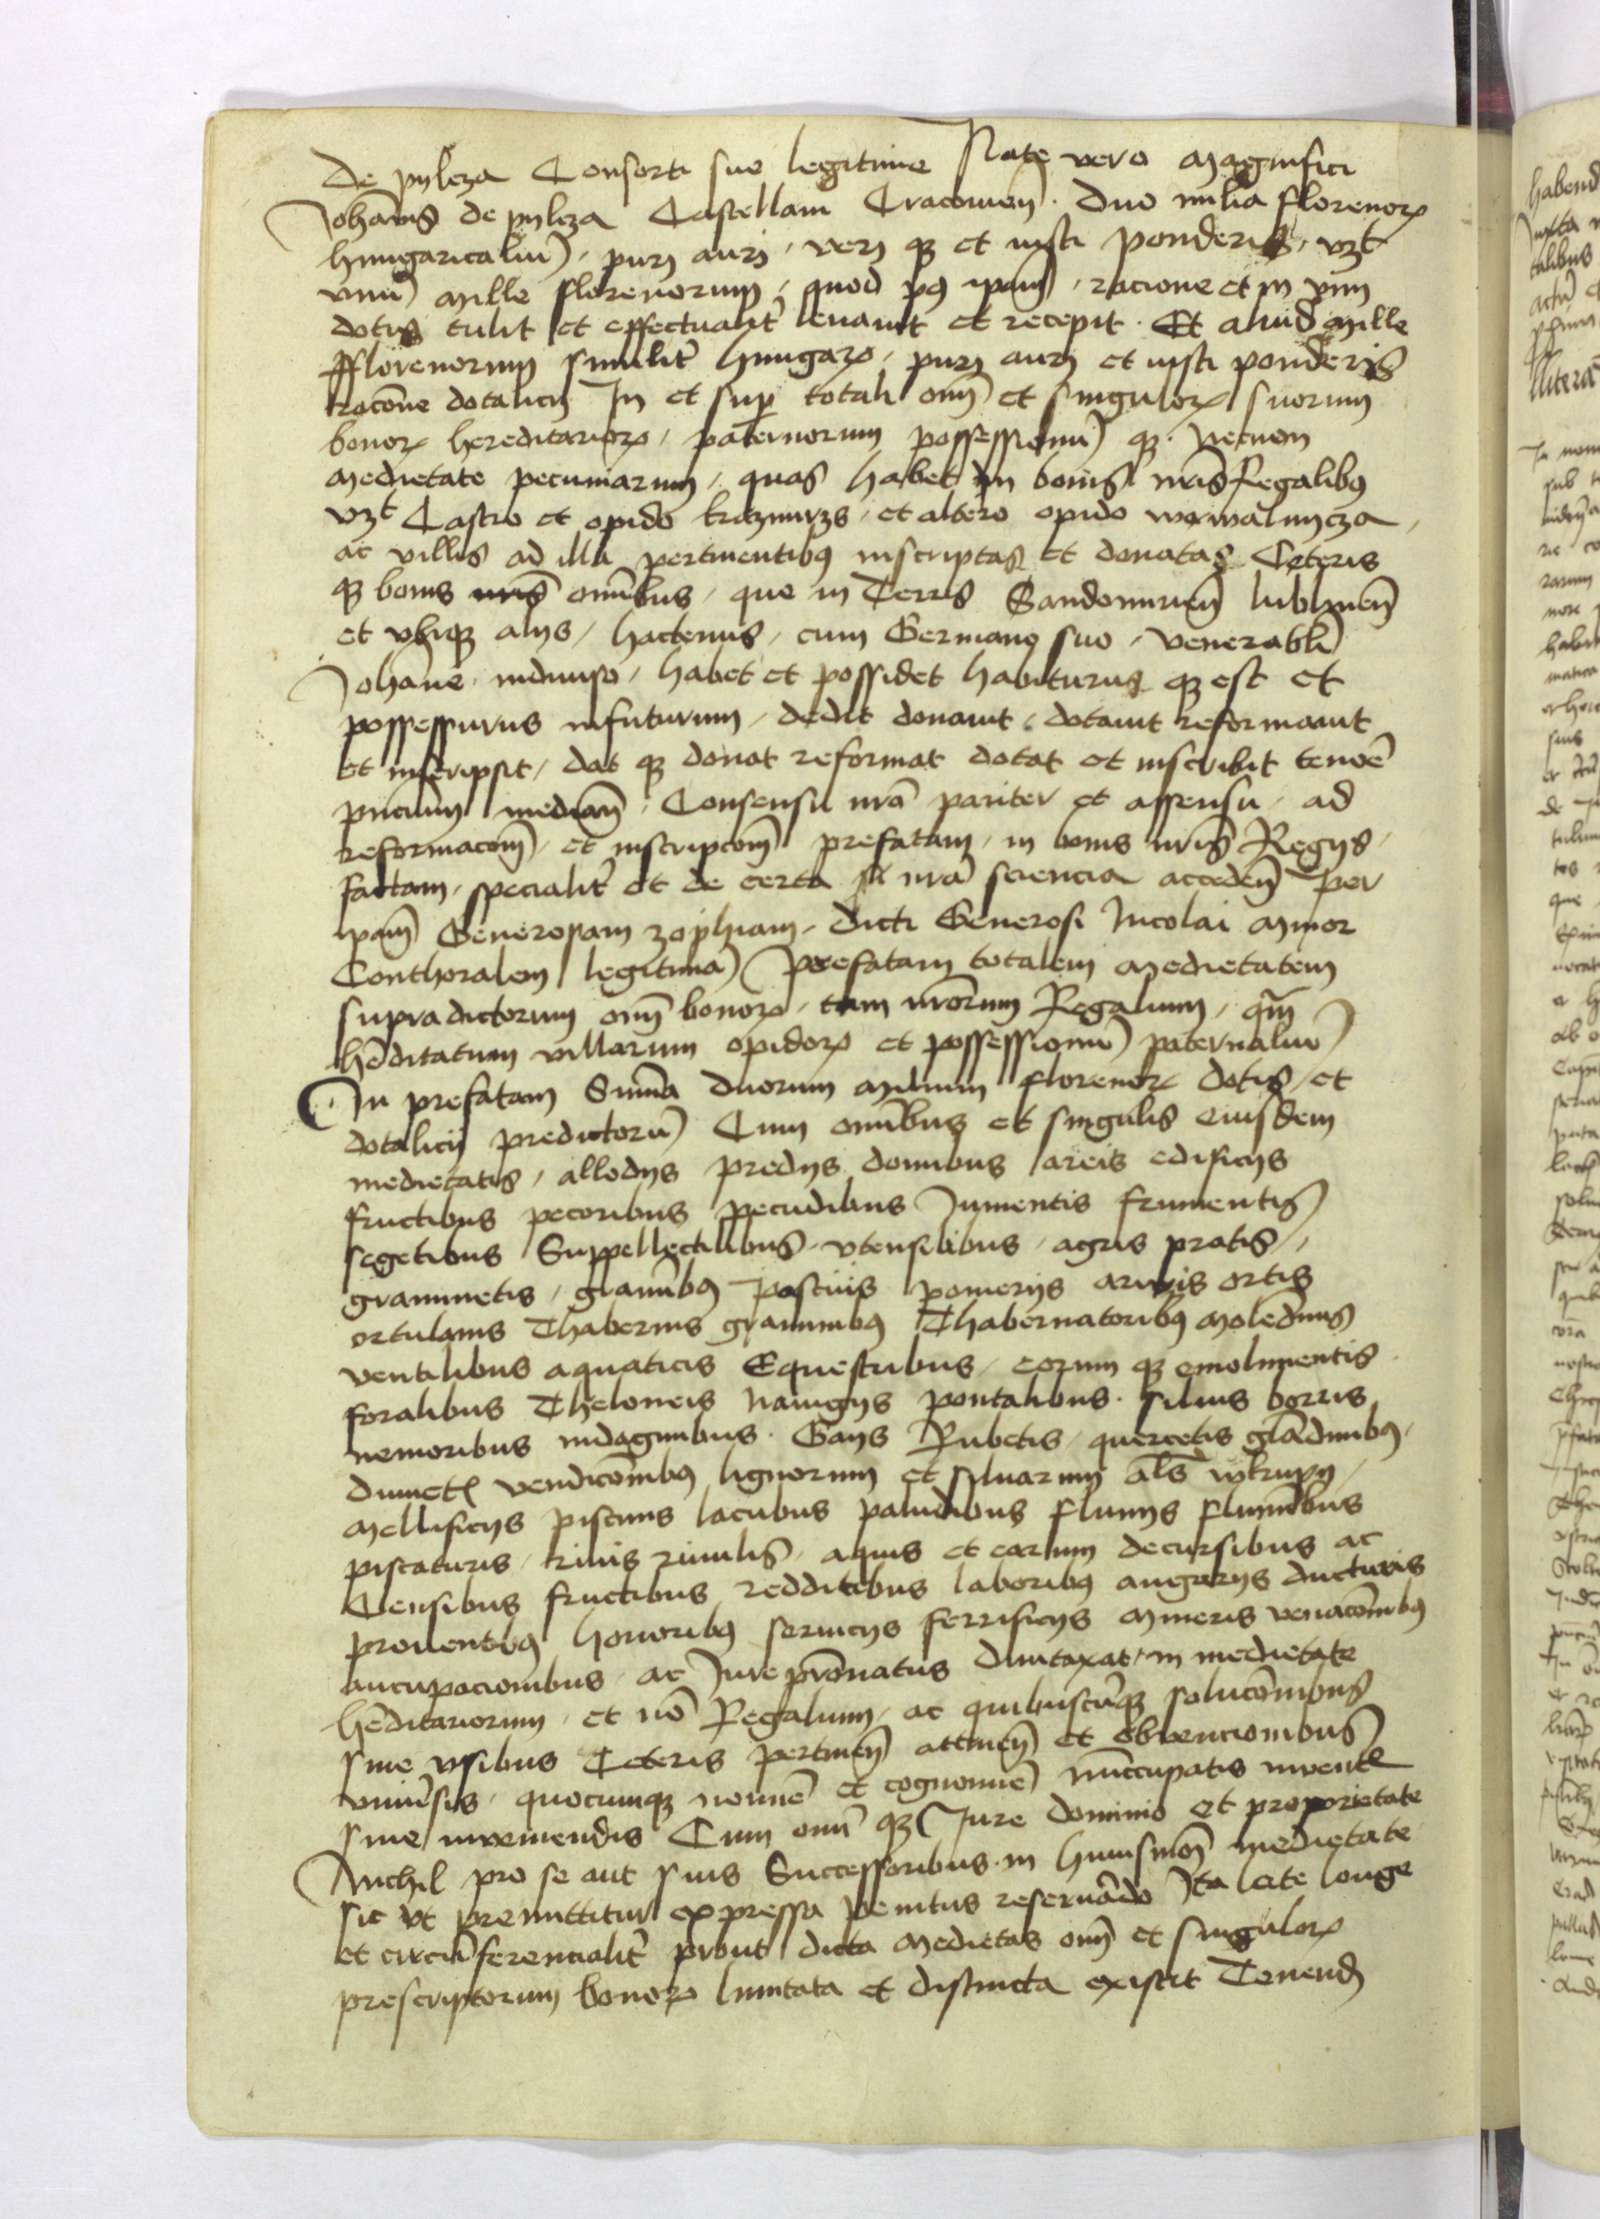 de pyleza Consorti sue legitime Nate vero magnifici
Johānis de pyleza Castellani Cracouien̄ . Duo milia florenorꝝ
hungaricaliū , puri auri , veri qꝫ et iusti ponderis , vꝫt
vnū mille florenorum , quod ipam̄ , racione et in vim
dotis tulit et effectualit̄ leuauit et recepit . Et aliud mille
fflorenorum similit̄ hungarꝝ , puri auri et iusti ponderis
racōne dotalicij In et sup̱ totali om̄ et singulorꝝ suorum
bonorꝝ hereditariorꝝ , paternorum possessionū qꝫ . Necnon
medietate pecuniarum , quas habet in bonis nr̄is Regalibꝯ
vꝫt Castro et opido , et altero opido
ac villis ad illa pertinentibꝯ inscriptas et donatas Ceteris
qꝫ bonis omībus , que in Terris Sandomirien̄ lublinen̄
et vbiqꝫ alijs , hactenus , cum Germano suo , venerabli
Johāne indiuiso , habet et possidet habiturus qꝫ est et
possessurus infuturum , dedit donauit , dotauit reformauit
et inscripsit , dat qꝫ donat reformat dotat et inscribit tenōē
pn̄cium median̄ , Consensu nrō pariter et assensu , ad
reformacōm̄ , et inscripcōm̄ prefatam , in bonis nr̄is Regijs ,
factam , specialit̄ et de certa nrā sciencia acceden̄ Per
ipam̄ Generosam zophiam , dicti Generosi Nicolai minor
Conthoralem legitimā Prefatam totalem medietatem
supradictorum om̄ bonorꝝ , tam nrōrum Regalium , qm̄
hēditatum villarum opidorꝝ et possessionū paternaliū
In prefatam Summa duorum milium florenorꝝ dotis , et
dotalicij predictorū Cum omībus et singulis eiusdem
medietatis , allodijs predijs domibus areis edificijs
fructibus pecoribus pecudibus Jumentis frumentis
segetibus Suppellectilibus . vtensilibus , agris pratis ,
graminetis , pascuis pomerijs aruis ortis
ortulanis Thabernis graminibꝯ Thabernatoribꝯ moledinis
ventilibus aquaticis Equestribus , eorum qꝫ emolumentis .
foralibus Theloneis nauigijs pontalibus . siluis borris
nemoribus indaginibus . Gays Rubetis , quercetis glādinibꝯ .
dumetꝭ vendicōnibꝯ lignorum et siluarum als̄ wkrupy ,
mellificijs piscinis lacubus paludibus fluuijs fluminībus
piscaturis , riuis riuulis , aquis et earum decursibus ac
Censibus fructibus redditibus laboribꝯ angarijs ducturis
prouentibꝯ honoribꝯ seruicijs ferrificijs mineris venacōnibꝯ
aucupacionibus , ac Jure prōnatus duntaxat , in medietate
hēditariorum , et nō Regalium , ac quibuscūqꝫ solucōnibus
siue vsibus Ceteris pertinen̄ attinen̄ et obuencionibus
vniu̅sis , quocumqꝫ nomīe et cognomīe nūccupatis inuentꝭ
siue inueniendis Cum omī qꝫ Jure dominio et proprietate
Nichil pro se aut suis Successoribus . in huiusmōi medietate
sic vt premittitur expressa penitus reseruādo Ita late longe
et circūferencialit̄ prout dicta medietas om̄ et singulorꝝ
prescriptorum bonorꝝ limitata et distincta existit Tenend